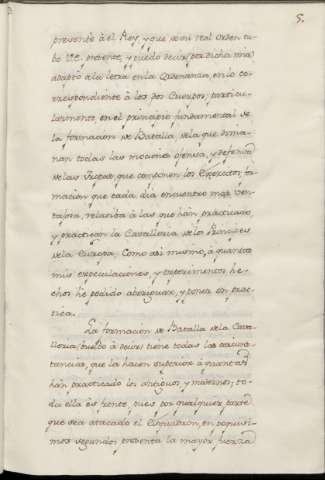 5.
presenté à el Rey, y que de su real orden tu-
bo V.E. presente, y puedo decir, por dicha mia,
adaptó à la letra en la Ordenanza, en lo co-
rrespondiente à los dos Cuerpos, particu-
larmente, en el principio fundamental de
la formacion de Batalla, de la que dima-
nan todas las mociones ofensa, y defensa
de las Tropas, que componen los Exercitos; for-
macion que cada dia encuentro mas ven-
tajosa, relativa à las que han practicado,
y practican la Cavalleria de los Principes
de la Europa. Como asi mismo, à quantas
mis expeculaciones, y experimentos he-
chos he podido aberiguar, y poner en prac-
tica.
La formacion de Batalla de la Cava-
lleria, (buelbo à decir) tiene todas las circuns-
tancias, que la hacen superior à quantas
han practicado los antiguos y modernos; to-
da ella es frente, pues por qualquier parte
que sea atacado el Esquadron, en poquisi-
mos segundos presenta la mayor fuerza